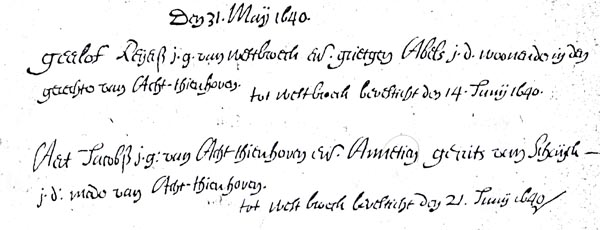 Den 31. Maij 1640.
geelof Reijerß j.g. van westbroeck en. grietgen Abels j.d. woonende in den
gerechte van Acht-thienhoven.
tot westbroeck bevesticht den 14. Junij 1640.
Aert Jacobß j.g: van Acht thienhoven en. Annetien gerrits van
j.d: mede van Acht-thienhoven.
tot westbroeck bevesticht den 21. Junij 1640